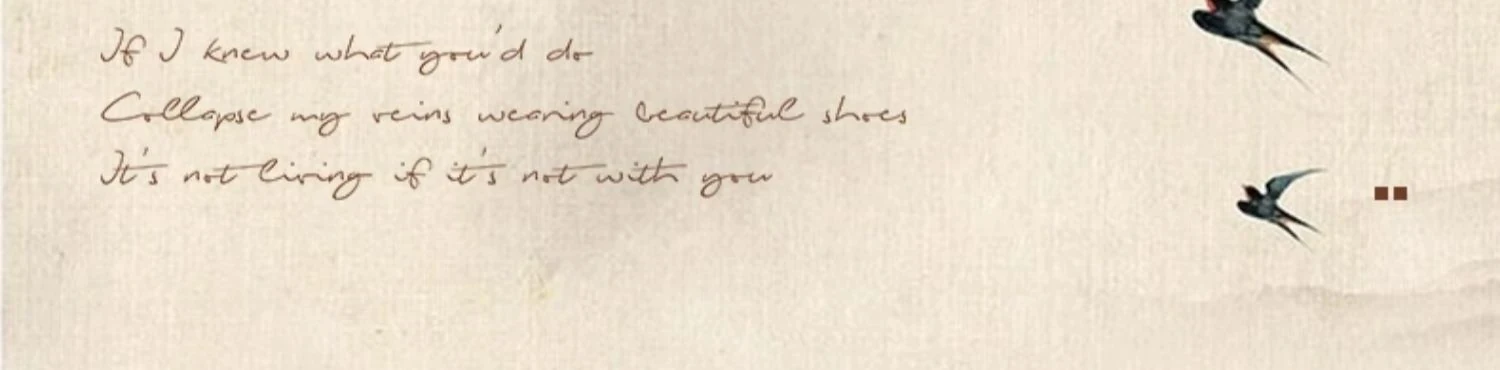 If I knew what you'd do
Collapse my veins wearing beautiful shoes
It's not living if it's not with you